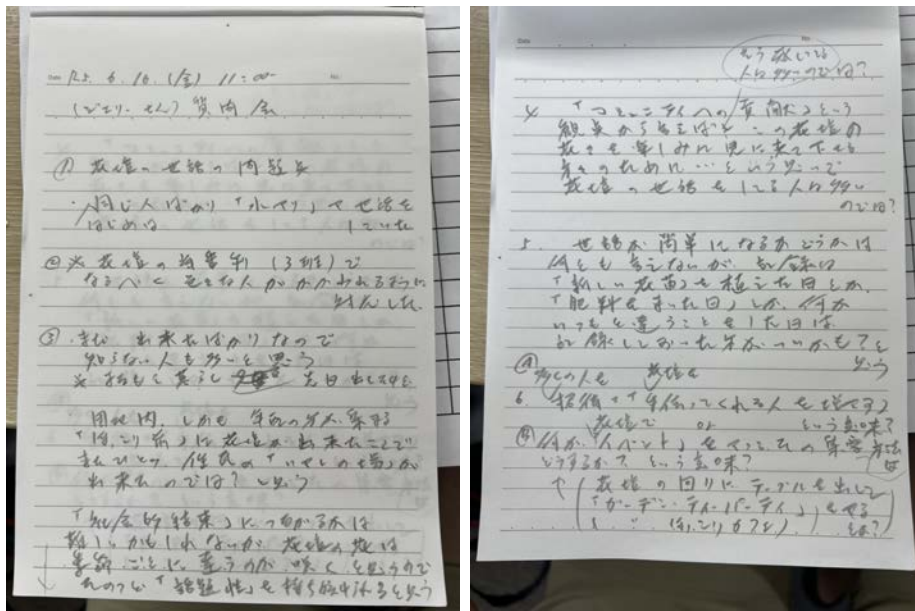 Date R5. 6. 16. (金) 11:00~ No.
質問会
① 花壇の世話の問題点
・同じ人ばかり「水やり」や世話を
はじめは していた
②※花壇の当番制 (3班)で
なるべく 色々な人がかかわれるように
しました
③・まだ 出来たばかりなので
知らない人も多いと思う
団地内、しかも 年配の方が集まる
「ほっこり 」に花壇が出来たことで
またひとつ、住民の「いやしの場」が
出来たのでは?と思う
「社会的結束」につながるかは
難しいかもしれないが 花壇の花は
季節ごとに違うのが 咲くと思うので
そのつど「話題性」を持ち続けれると思う
Date No.
そう感じてる
人は多いのでは?
4 「コミュニティへの貢献」という
観点から言えばと この花壇の
花々を楽しみに見に来て下さる
方々のために…という思いで
花壇の世話をしてる人は多い
のでは?
5. 世話が簡単になるかどうかは
何とも言えないが 記録は
「新しい花苗」を植えた日とか、
「肥料をまいた日」とか、何か
いつもと違うことをした日は
記録しておいた方がいいかも?と
思う
Ⓐ 多くの人を 花壇を
6. 招待→「手伝ってくれる人を増やす」
花壇で or という意味?
Ⓑ 何か「イベント」をやってその集客方法は
どうするか?という意味?
↑ 花壇の回りにテーブルを出して
「ガーデン・ティーパーティ」をやる
( 〃 ほっこりカフェ) とか?